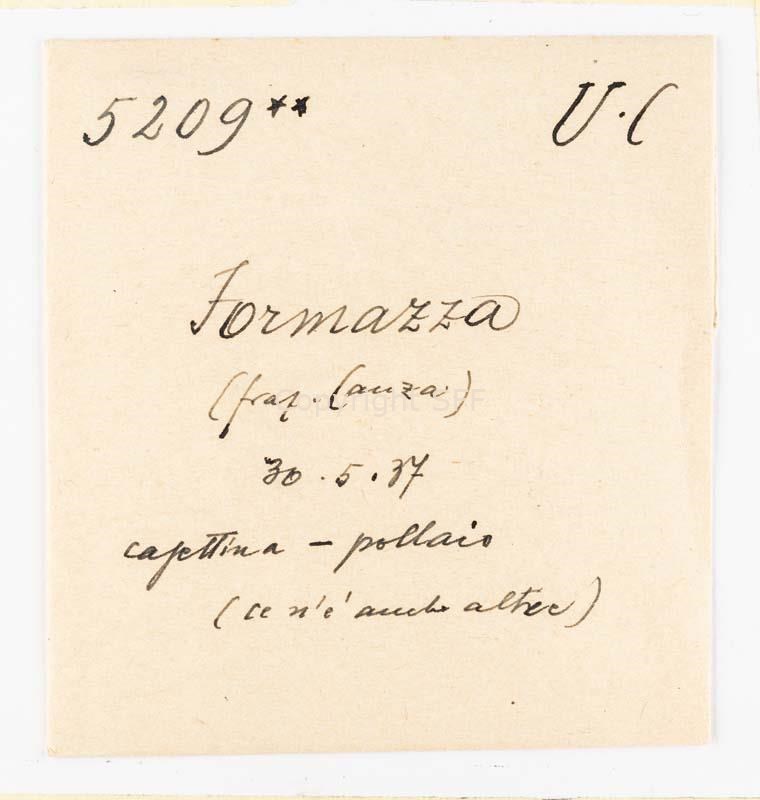 5209** U.C
Formazza
(fraz. Canza)
30.5.37
casettina - pollaio
(ce n'è anche altre)
Copyright SFF